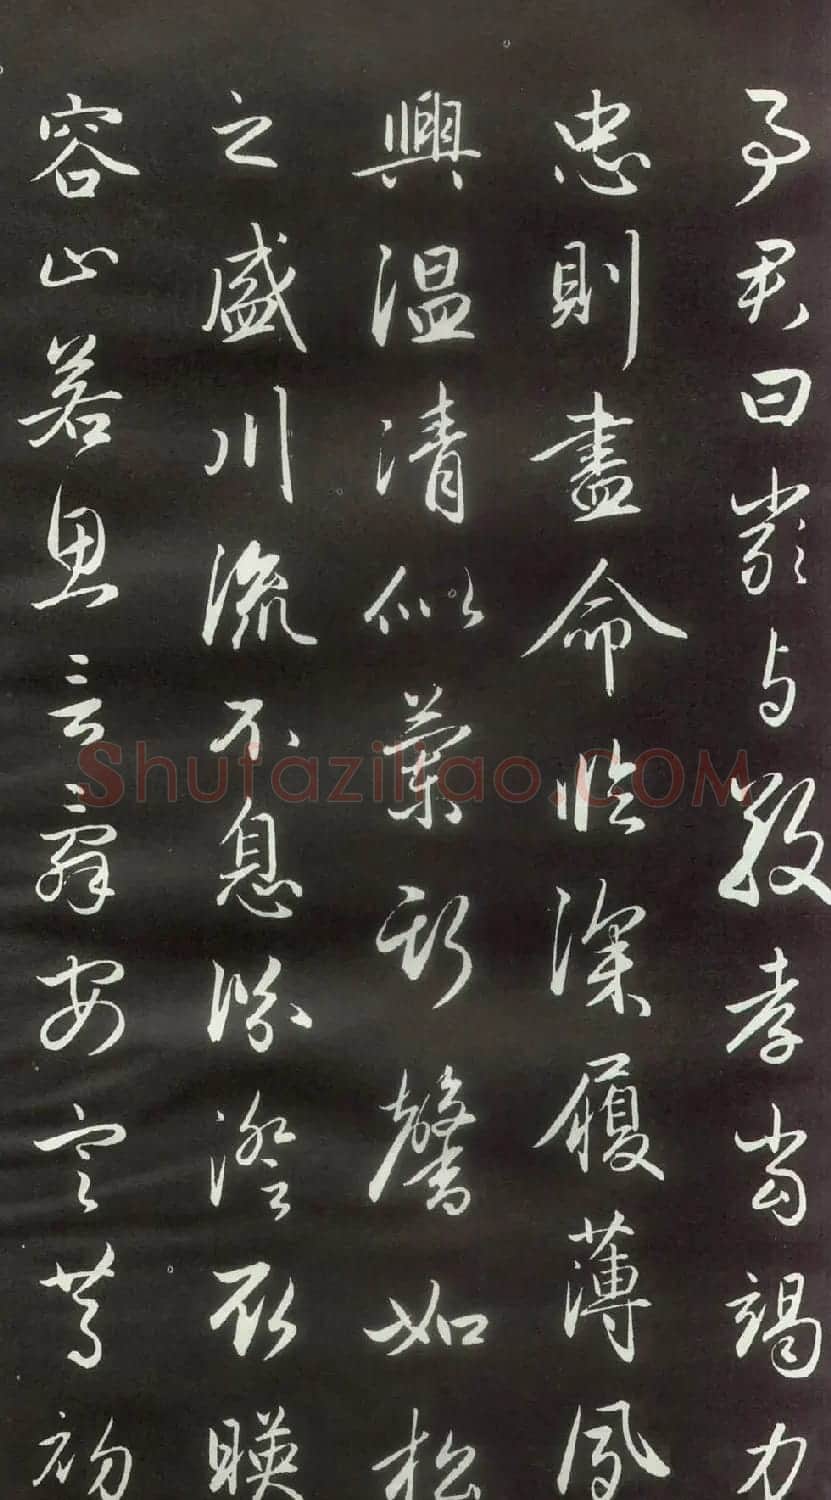 事君曰嚴与敬孝當竭力
忠則盡命临深履薄夙
興温清似蘭斯馨如松
之盛川流不息渊澄取暎
容止若思言辞安定篤初
Shufaziliao.COM